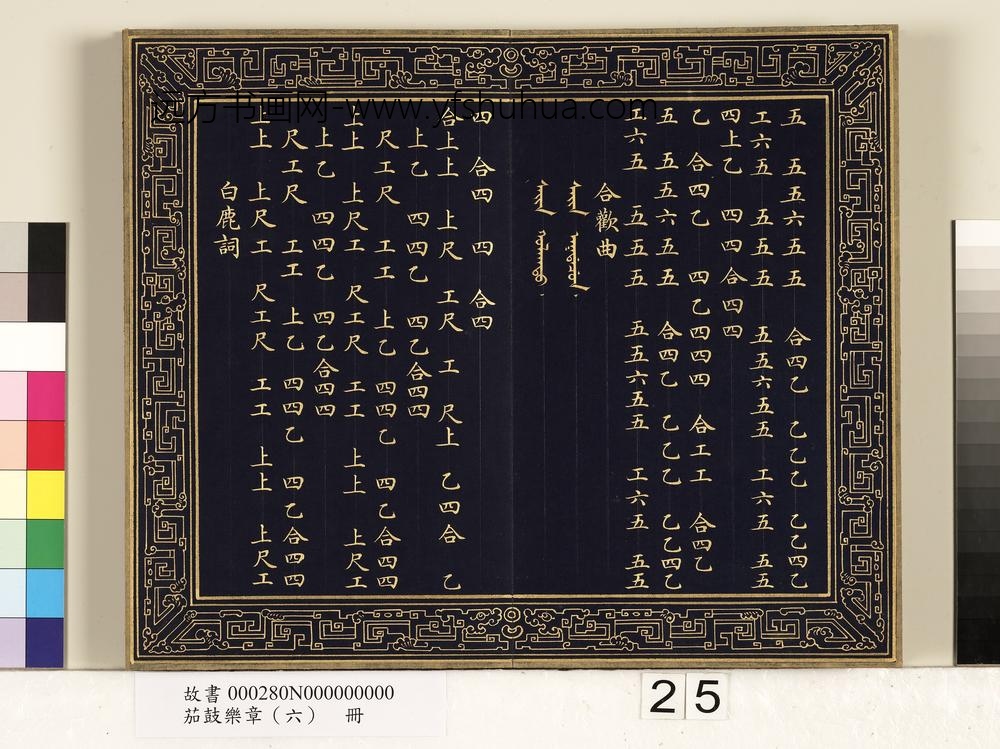 远方书画网-www.yfshuhua.com
五 五五六五五 合四乙 乙乙乙 乙乙四乙
工六五 五五五 五五六五五 工六五 五五
四上乙 四四合四四
乙 合四乙 四乙四四四 合工工 合四乙
五 五五六五五 合四乙 乙乙乙 乙乙四乙
工六五 五五五 五五六五五 工六五 五五
合歡曲
四 合四 四 合四
合上上 上尺 工尺 工 尺上 乙四合 乙
上乙 四四乙 四乙合四四
尺工尺 工工 上乙 四四乙 四乙合四四
上上 上尺工 尺工尺 工工 上上 上尺工
上乙 四四乙 四乙合四四
尺工尺 工工 上乙 四四乙 四乙合四四
上上 上尺工 尺工尺 工工 上上 上尺工
白鹿詞
故書 000280N000000000
茄鼓樂章（六） 冊
25